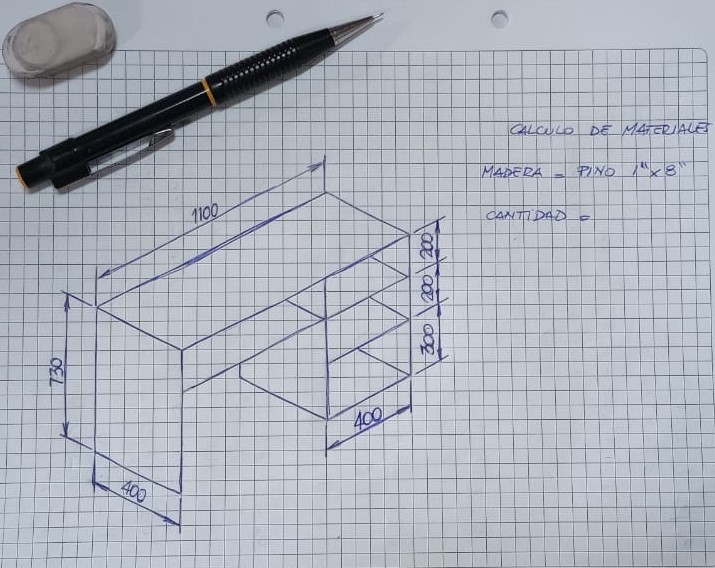 CALCULO DE MATERIALES
MADERA = PINO 1" x 8"
CANTIDAD =
1100
200
200
300
730
400
400